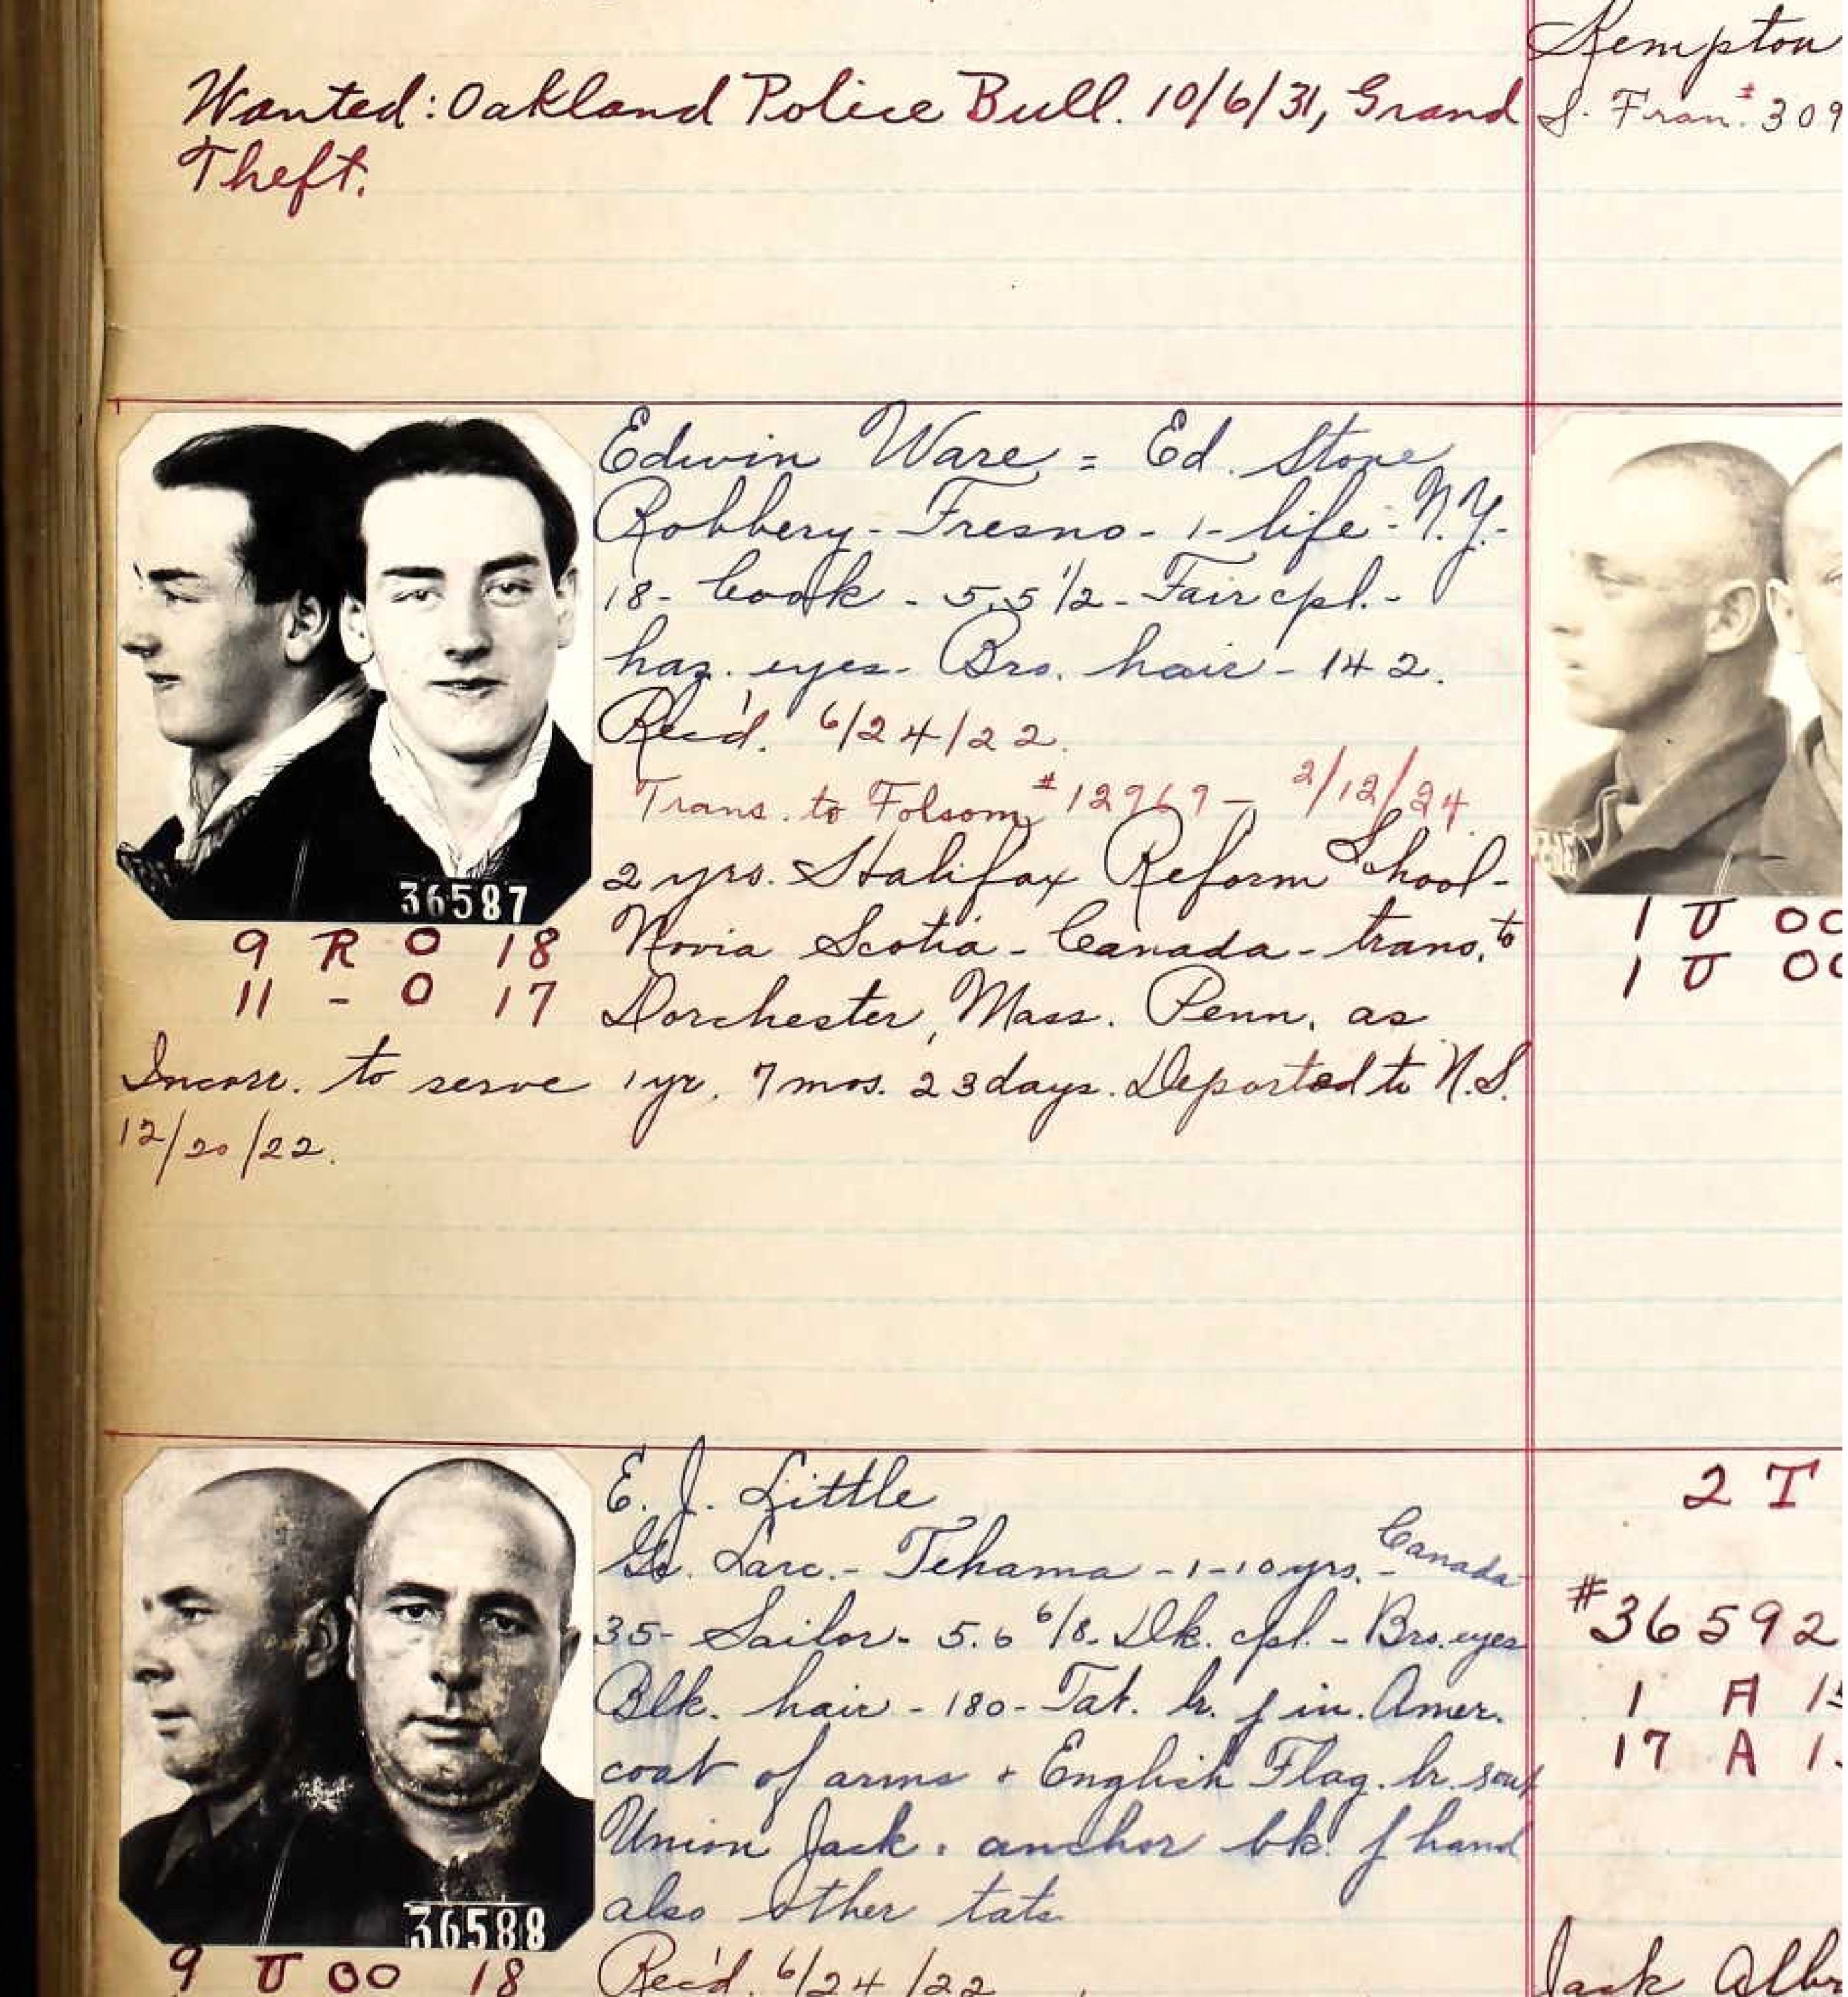 Wanted: Oakland Police Bull. 10/6/31, Grand
Theft.
Edwin Ware = Ed. Stone
Robbery - Fresno - 1 - life - N.Y. -
18 - Cook - 5.5 1/2 - Fair cpl. -
haz. eyes - Bro. hair - 142.
Rec'd. 6/24/22.
Trans. to Folsom #12969 - 2/12/24.
2 yrs. Halifax Reform School -
Novia Scotia - Canada - trans. to
Dorchester, Mass. Penn. as
Incorr. to serve 1 yr. 7 mos. 23 days. Deported to N.S.
12/20/22.
36587
9 R O 18
11 - O 17
E. J. Little
Gr. Larc. - Tehama - 1-10 yrs. - Canada
35 - Sailor - 5.6 6/8 - Dk. cpl. - Bro. eyes
Blk. hair - 180 - Tat. lr. f in. Amer.
coat of arms + English Flag. lr. out
Union Jack. anchor bk. f hand
also other tats
Rec'd. 6/24/22
36588
9 U OO 18
Kempton
S. Fran. #309
1 U OO
1 U OO
2 T
#36592
1 A
17 A
Jack